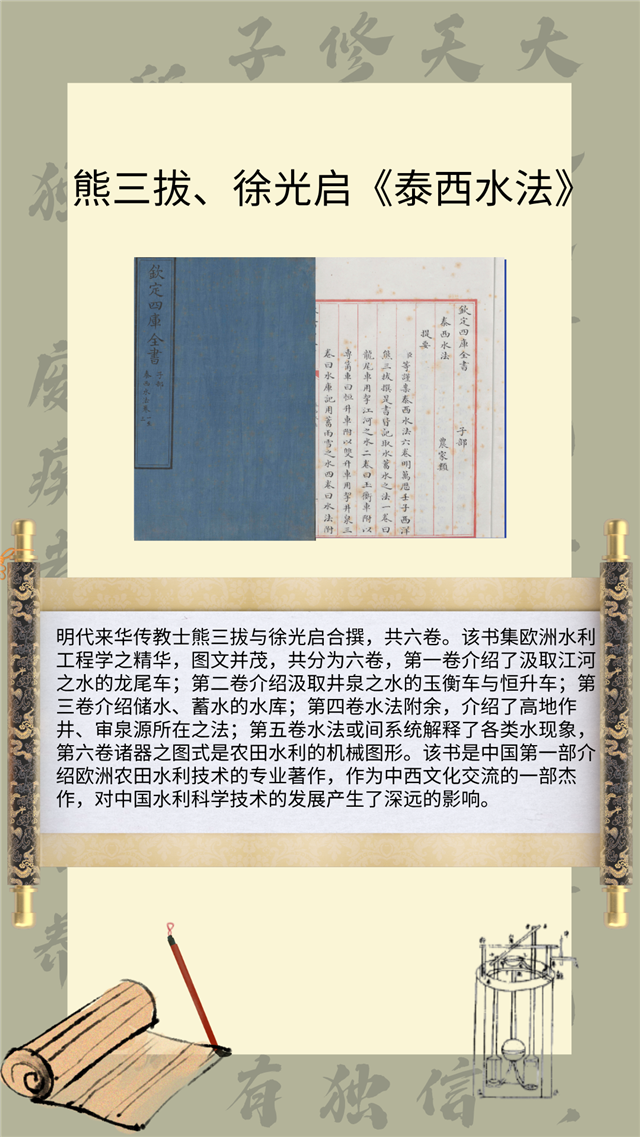 子修天大
熊三拔、徐光启《泰西水法》
欽定四庫全書
子部
欽定四庫全書
子部
泰西水法
農家類
提要
臣等謹案泰西水法六卷明萬歷壬子西洋
熊三拔撰是書皆記取水蓄水之法一卷曰
龍尾車用挈江河之水二卷曰玉衡車附以
專筩車曰恒升車附以雙升車用挈井泉三
卷曰水庫記用蓄雨雪之水四卷曰水法附
明代来华传教士熊三拔与徐光启合撰，共六卷。该书集欧洲水利
工程学之精华，图文并茂，共分为六卷，第一卷介绍了汲取江河
之水的龙尾车；第二卷介绍汲取井泉之水的玉衡车与恒升车；第
三卷介绍储水、蓄水的水库；第四卷水法附余，介绍了高地作
井、审泉源所在之法；第五卷水法或间系统解释了各类水现象，
第六卷诸器之图式是农田水利的机械图形。该书是中国第一部介
绍欧洲农田水利技术的专业著作，作为中西文化交流的一部杰
作，对中国水利科学技术的发展产生了深远的影响。
有独信